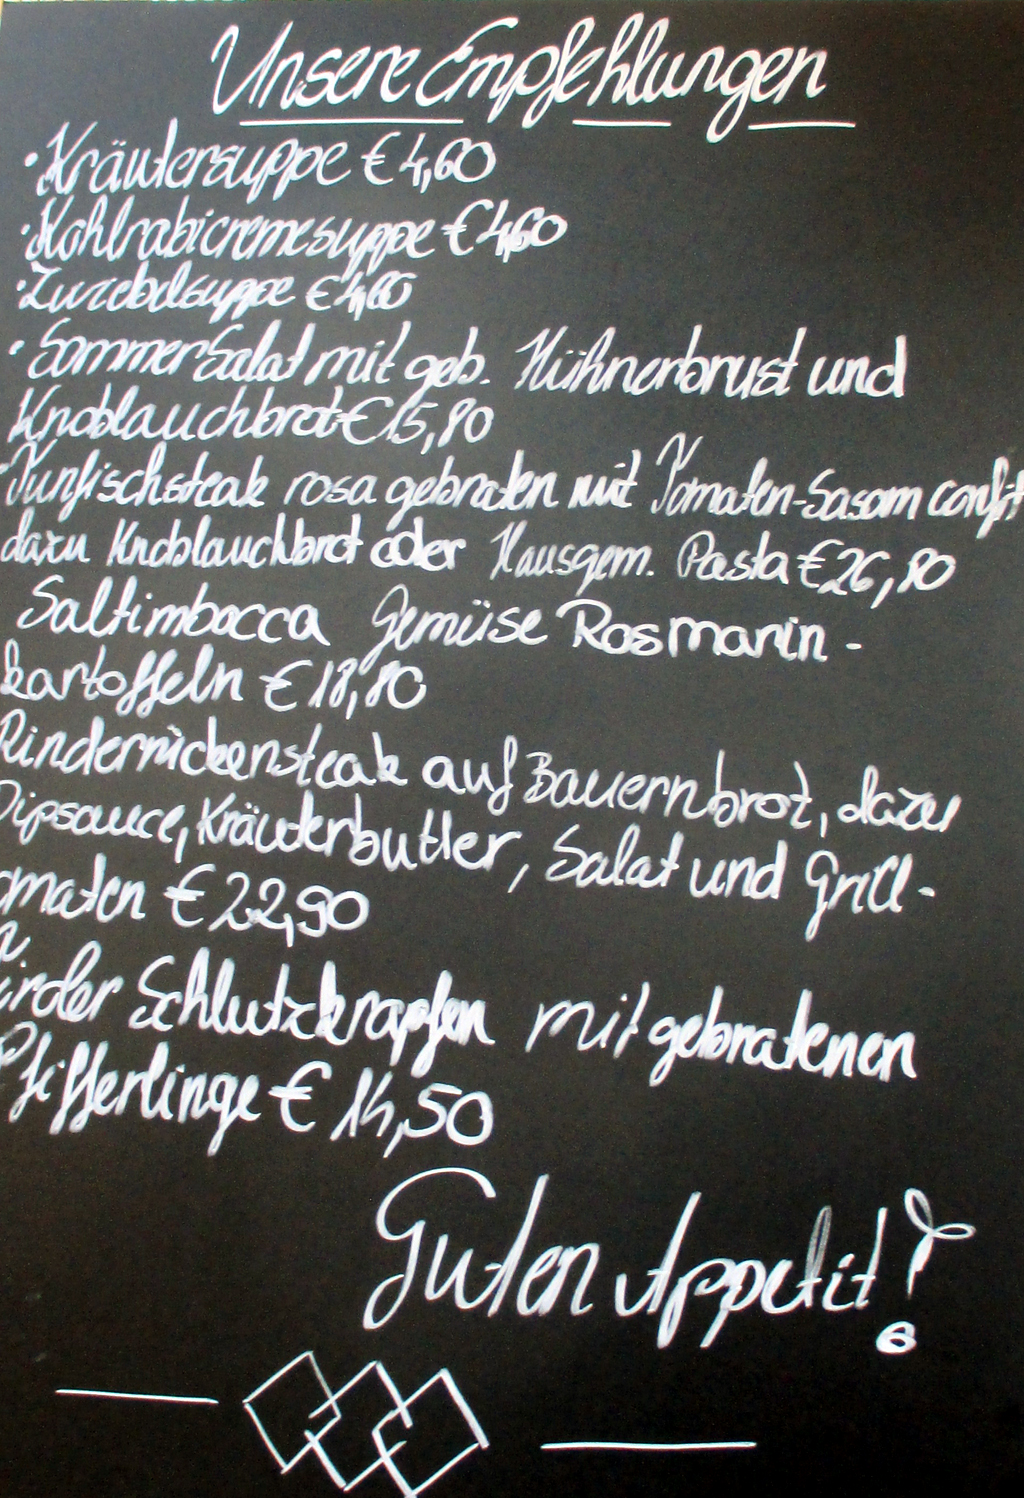 Unsere Empfehlungen
· Kräutersuppe € 4,60
· Kohlrabicremesuppe € 4,60
· Zwiebelsuppe € 4,60
· SommerSalat mit geb. Hühnerbrust und
Knoblauchbrot € 15,80
· Tunfischsteak rosa gebraten mit Tomaten-Sasam confit
dazu Knoblauchbrot oder Hausgem. Pasta € 26,80
Saltimbocca Gemüse Rosmarin-
kartoffeln € 18,80
Rinderrückensteak auf Bauernbrot, dazu
Dipsauce, Kräuterbutter, Salat und Grill-
omaten € 22,90
irder Schlutzkrapfen mit gebratenen
Pfifferlinge € 14,50
Guten Appetit!